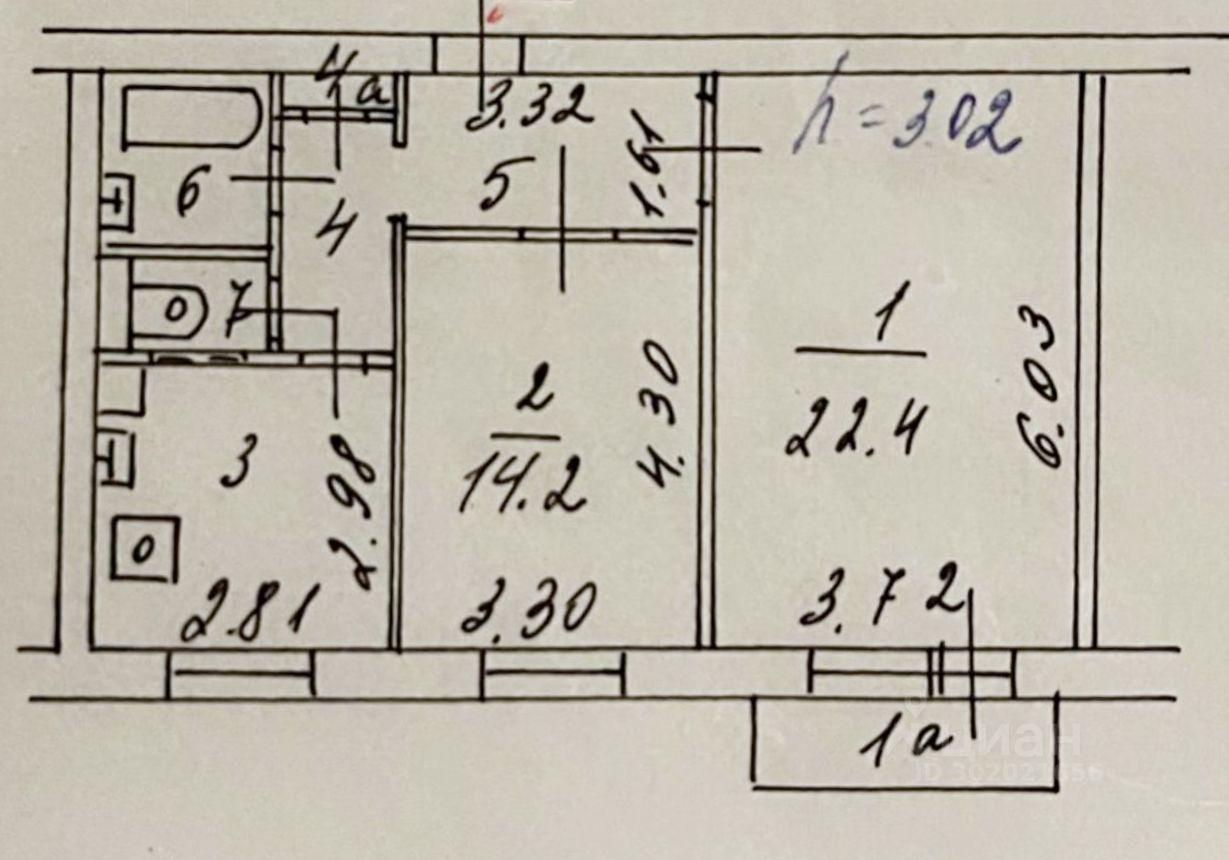 4a
3.32
h = 3.02
6
5
1.61
4
7
1
22.4
6.03
2
14.2
4.30
3
2.98
2.81
3.30
3.72
1a
циан